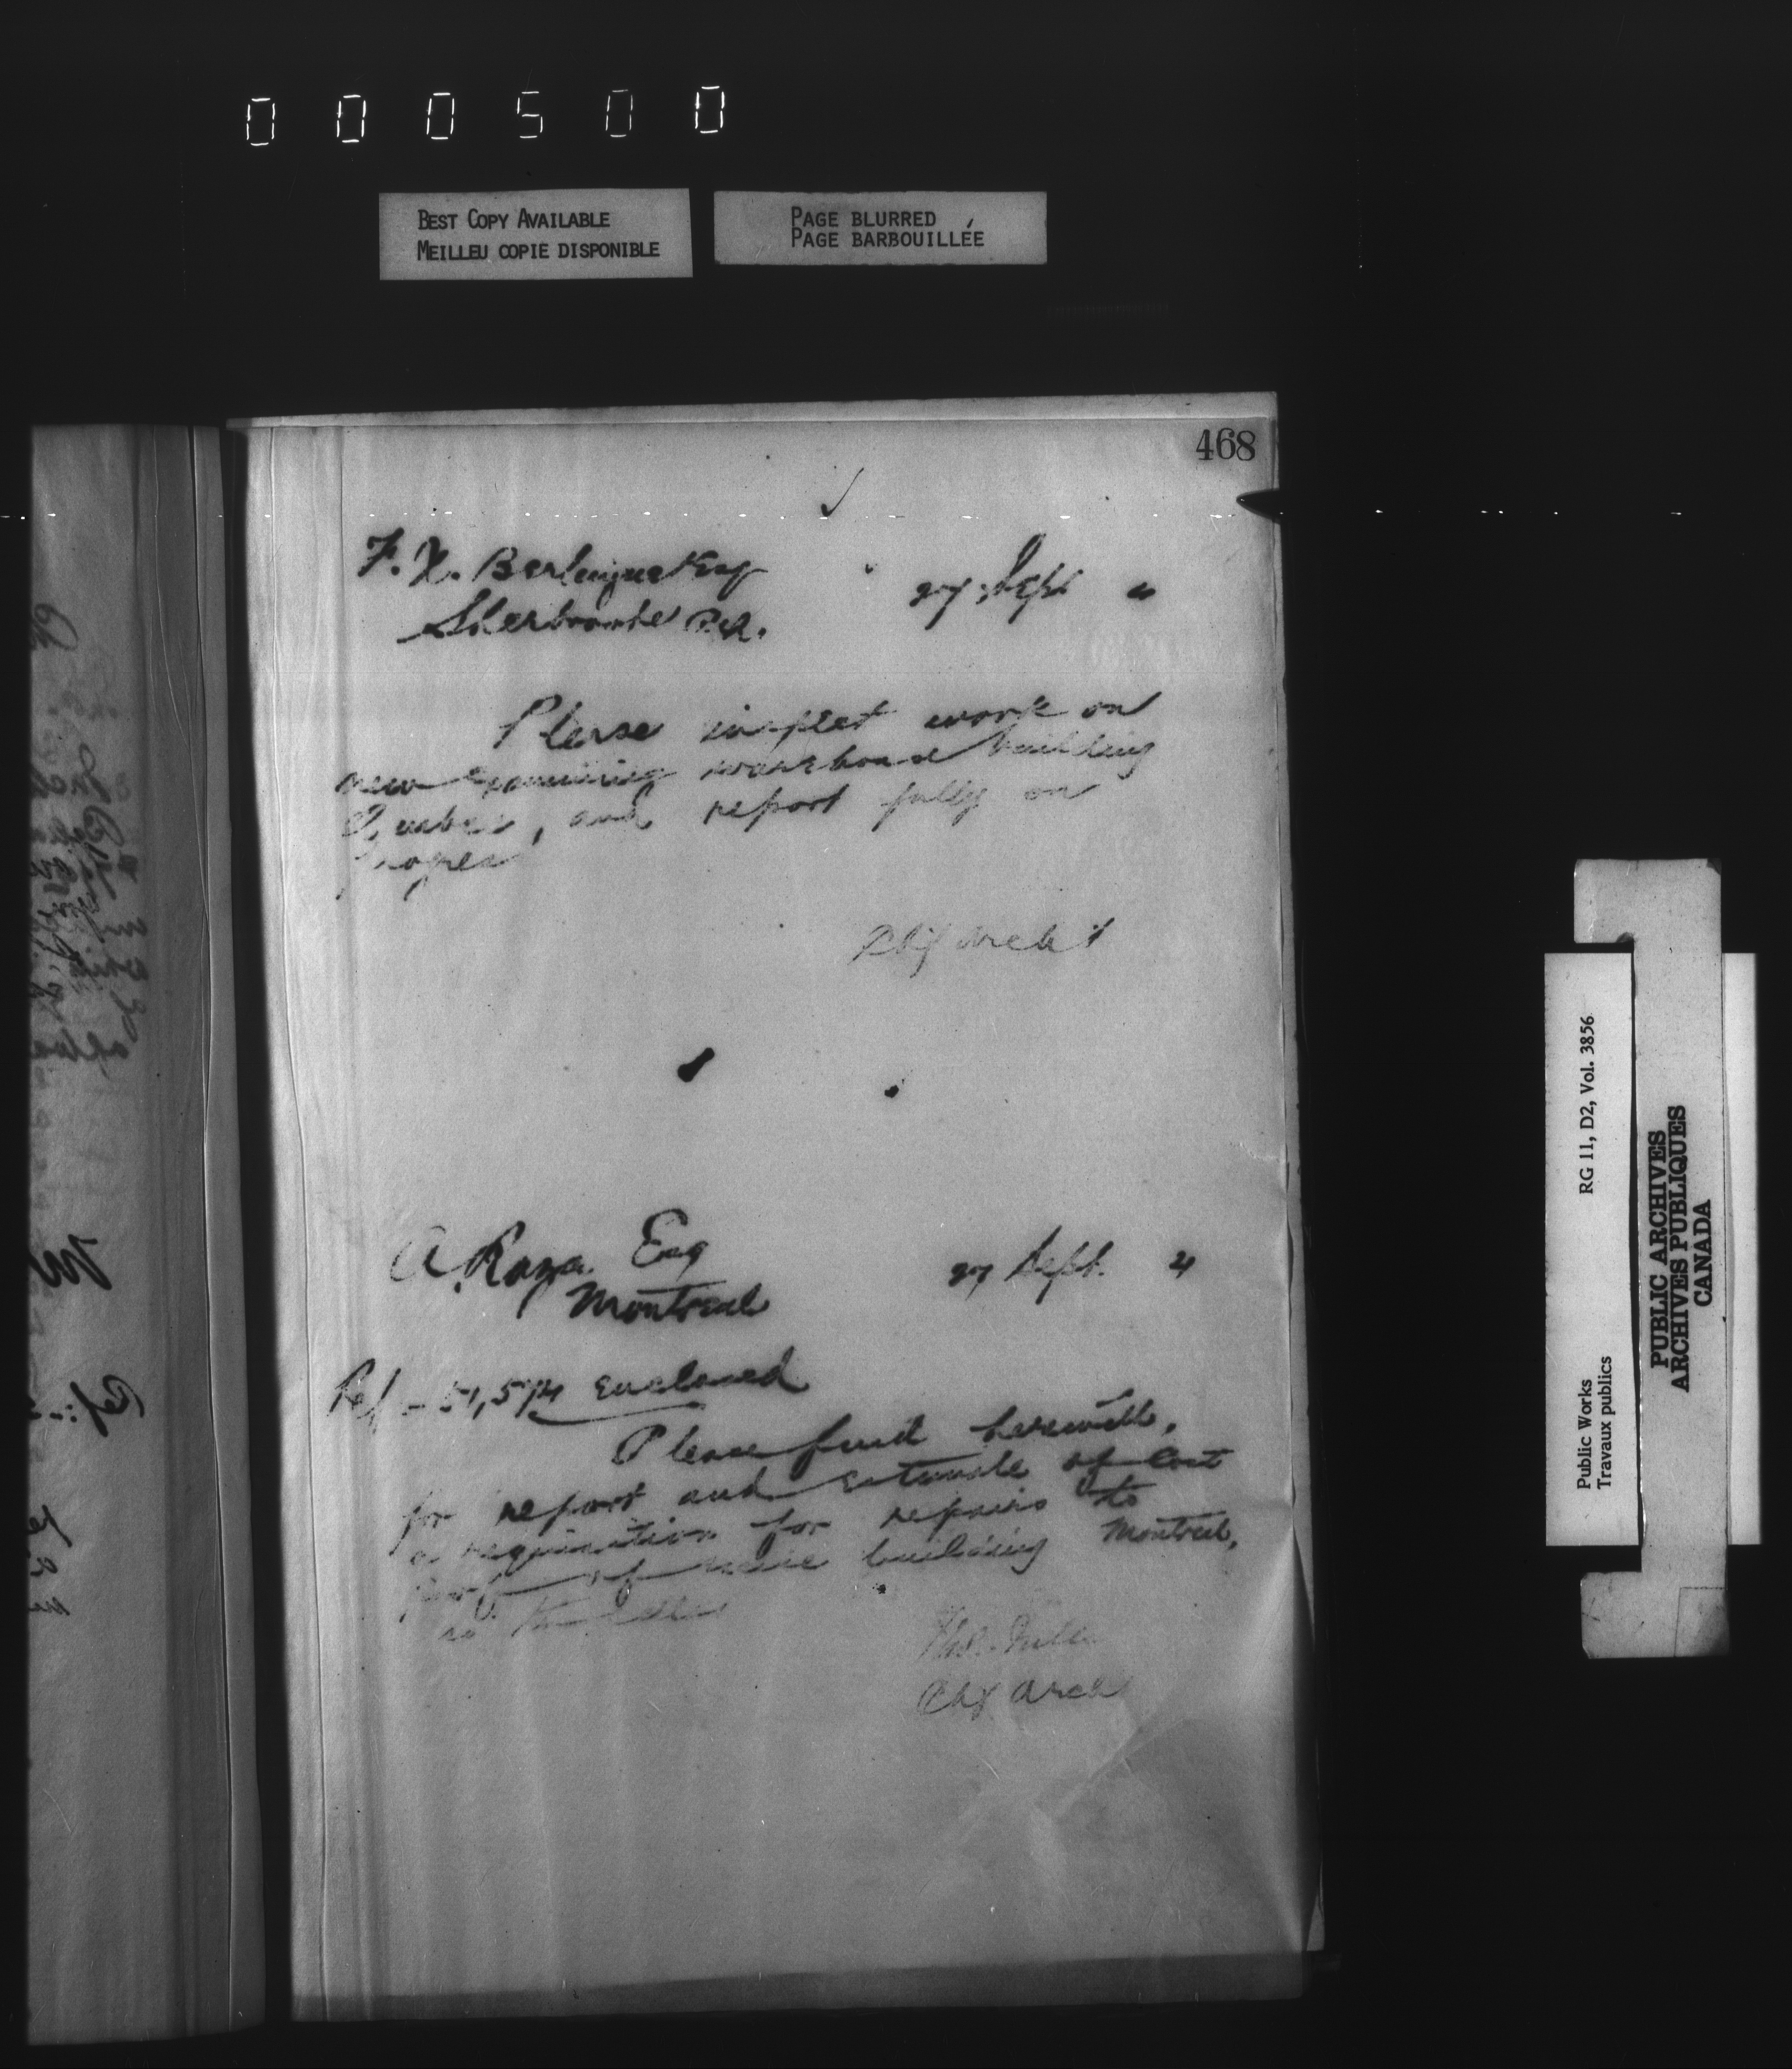 000500
BEST COPY AVAILABLE
MEILLEU COPIE DISPONIBLE
PAGE BLURRED
PAGE BARBOUILLÉE
468
F. X. Berlinguet Esq
Sherbrooke P.Q.
27 Sept
Please inspect work on
new Examining warehouse building
Quebec, and report fully on
progress
Chf Archt
A. Raza Esq
Montreal
27 Sept.
Ref - 51,514 enclosed
Please find herewith,
for report and estimate of cost
a requisition for repairs to
building Montreal,
Thos. Fuller
Chf Archt
Public Works
Travaux publics
RG 11, D2, Vol. 3856
PUBLIC ARCHIVES
ARCHIVES PUBLIQUES
CANADA